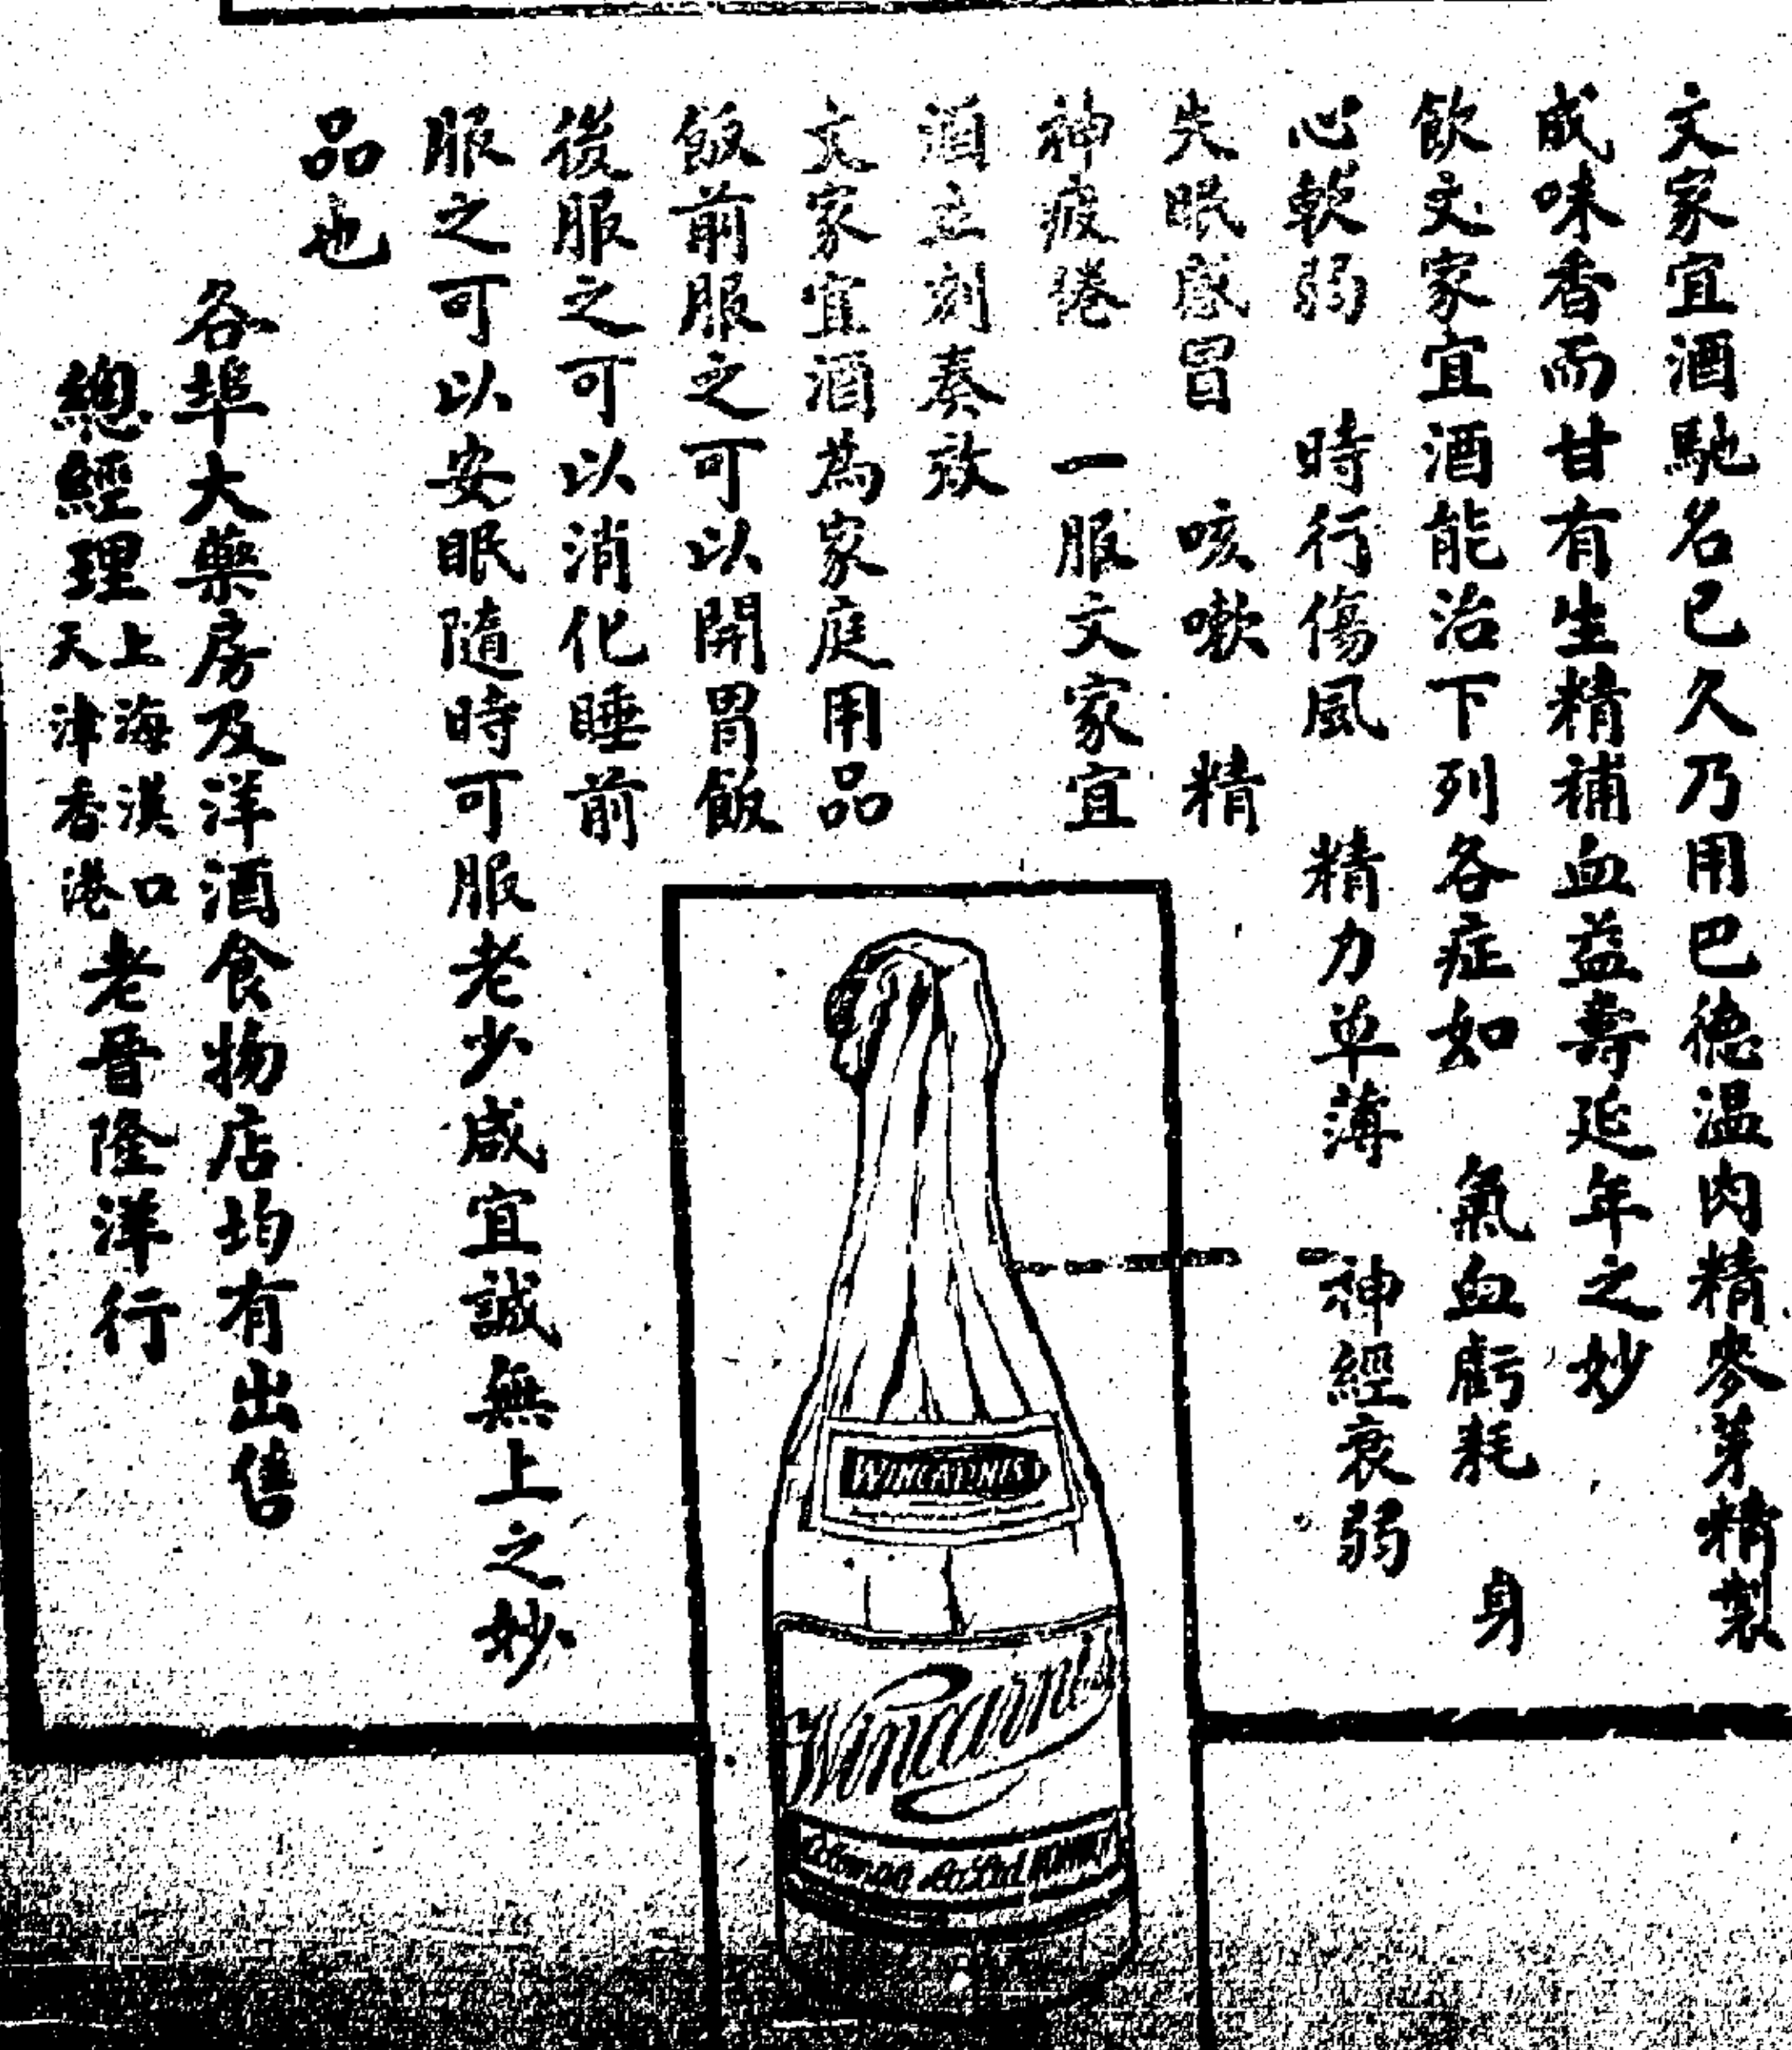 文家宜酒馳名已久乃用巴德温肉精麥芽精製
成味香而甘有生精補血益壽延年之妙
飲文家宜酒能治下列各症如 氣血虧耗 身
心軟弱 時行傷風 精力单薄 神經衰弱
失眠感冒 咳嗽 精
神疲倦 一服文家宜
酒立刻奏效
文家宜酒為家庭用品
飯前服之可以開胃飯
後服之可以消化睡前
服之可以安眠隨時可服老少咸宜誠無上之妙
品也
各埠大藥房及洋酒食物店均有出售
總經理 上海漢口 天津香港 老晉隆洋行
WINCARNIS
Wincarnis